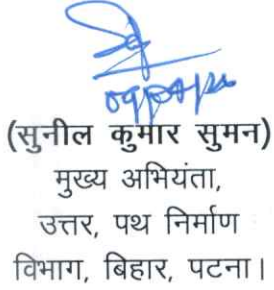 (सुनील कुमार सुमन)
मुख्य अभियंता,
उत्तर, पथ निर्माण
विभाग, बिहार, पटना।